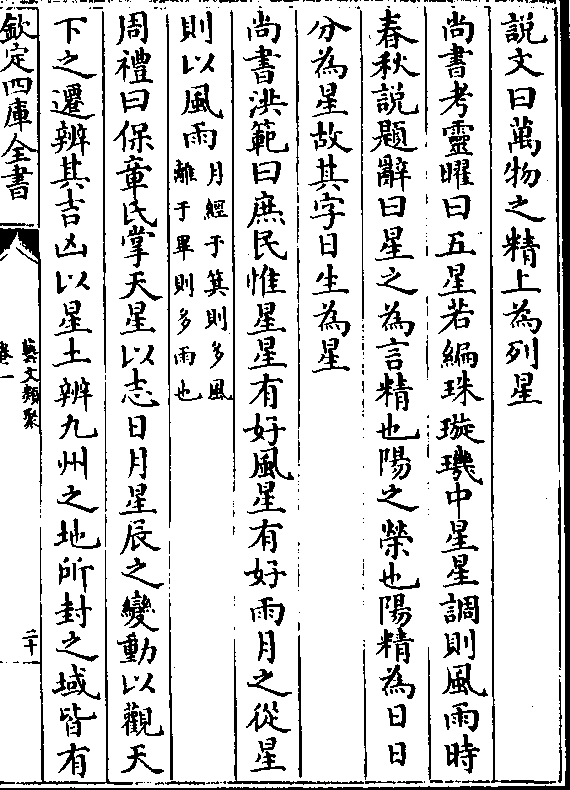 說文曰萬物之精上為列星
尚書考靈曜曰五星若編珠璇璣中星星調則風雨時
春秋說題辭曰星之為言精也陽之榮也陽精為日日
分為星故其字日生為星
尚書洪範曰庶民惟星星有好風星有好雨月之從星
則以風雨月經于箕則多風
離于畢則多雨也
周禮曰保章氏掌天星以志日月星辰之變動以觀天
下之遷辨其吉凶以星土辨九州之地所封之域皆有
欽定四庫全書
藝文類聚
卷一
二十